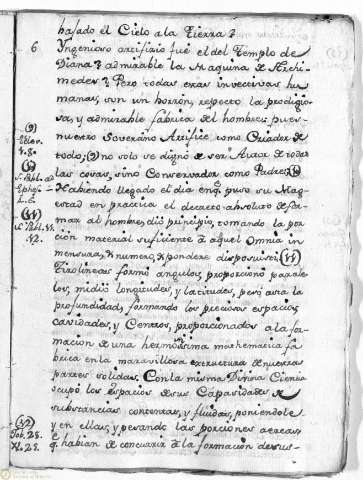 bajado el Cielo a la Tierra?
6 Yngenioso artificio fué el del Templo de
Diana? admirable la Maquina de Archi-
medes? Pero todas eran invectivas hu-
manas, son un borron, respecto la prodigio-
sa, y admirable fabrica del hombre, pues
nuestro Soverano Artifice como Criador de
todo; (9) no solo se dignó de ser Autor de todas
las cosas, sino Conservador como Padre: (10)
Habiendo llegado el dia en q. puso su Mag-
estad en practica el decreto absoluto de for-
mar al hombre, dió principio, tomando la por-
cion material suficiente a aquel Omnia in
mensura, & numero, & pondere disposuisti, (11)
Tirò lineas formó angulos, proporcionó parale-
los, midió longitudes, y latitudes, pesó asta la
profundidad, formando los precisos espacios,
cavidades, y Centros, proporcionados a la for-
macion de una hermosissima mathematica fa-
brica en la maravillosa extructura de nuestras
partes solidas. Con la misma Divina Ciencia
ocupó los espacios de sus Capasidades de
substancias contentas, y fluidas, poniendole
y en ellas, y pesando las porciones aereas,
q. habian de concurrir a la formacion de sus-
(9)
(10)
(11)
(12)
Job. 28.